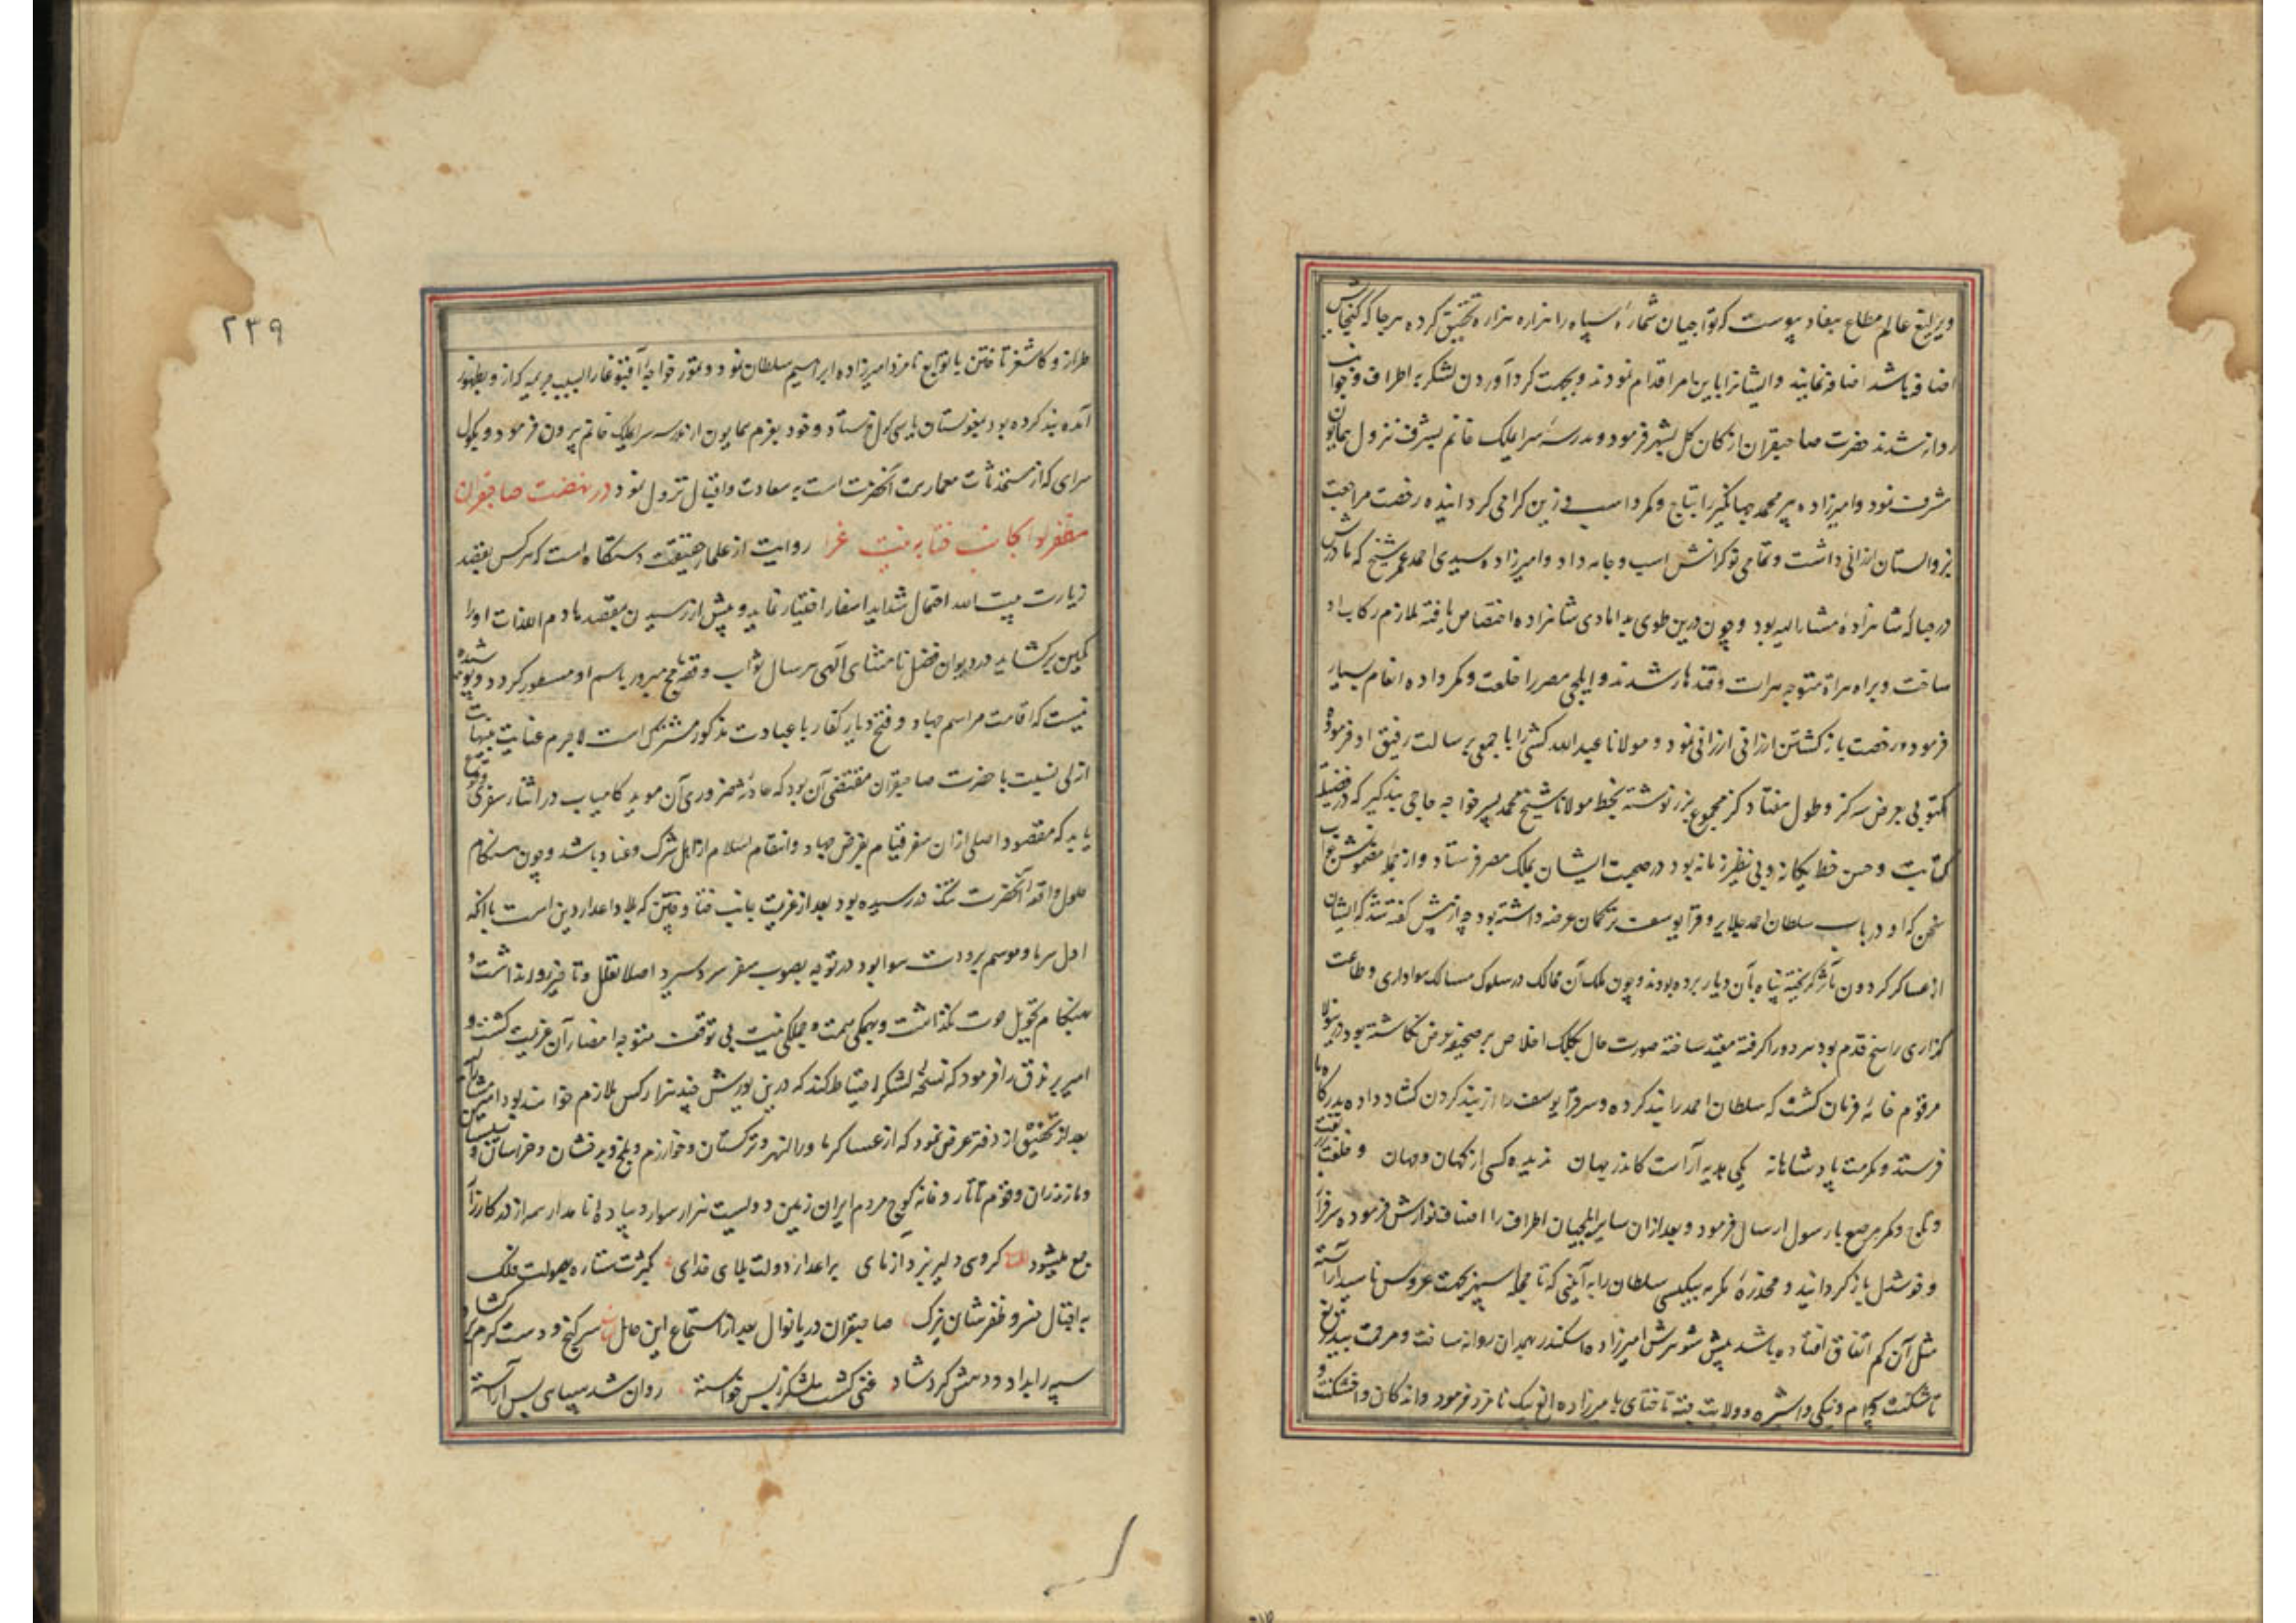 ویرلیغ عالم مطاع بنفاذ پیوست که تواجیان شماره سپاه را هزاره هزاره تحقیق کرده هرجا که گنجایش
اضافه باشد اضافه نمایند و ایشان را باین امر اقدام نمودند و بجهت گرد آوردن لشکر به اطراف و جوانب
روانه شدند حضرت صاحبقران از کان گل بشهر فرمود و مدرسهٔ سرایملک خانم بشرف نزول همایون
مشرف نمود و امیرزاده پیر محمد جهانگیر را بتاج و کمر و اسب و زین گرامی گردانیده رخصت مراجعت
بزوالستان ارزانی داشت و تمامی نوکرانش اسب و جامه داد و امیرزاده سیدی احمد عمر شیخ که مادرش
در حباله شاهزادهٔ مشارالیه بود و چون درین طوی بدامادی شاهزاده اختصاص یافته ملازم رکاب او
ساخت و براه هراة متوجه هرات و قندهار شدند و ایلچی مصر را خلعت و کمر داده انعام بسیار
فرمود و رخصت بازگشتن ارزانی ارزانی نمود و مولانا عبدالله کشی را با جمعی برسالت رفیق او فرموده
مکتوبی بعرض سه گز و طول هفتاد گز مجموع بزر نوشته بخط مولانا شیخ محمد پسر خواجه حاجی بندگیر که در فضیلت
کتابت و حسن خط یگانه و بی نظیر زمانه بود در صحبت ایشان بملک مصر فرستاد و از جمله مضمونش جواب
سخن که او در باب سلطان احمد جلایر و قرا یوسف ترکمان عرضه داشته بود چه از پیش گفته شد که ایشان
از عساکر گردون مآثر گریخته پناه بآن دیار برده بودند و چون ملک آن ممالک در سلوک مسالک هواداری و طاعت
گزاری راسخ قدم بود هر دو را گرفته مقید ساخته صورت حال بکلک اخلاص بر صحیفه عرض نگاشته بود درینولا
مرقوم خامهٔ فرمان گشت که سلطان احمد را بند کرده و سر قرا یوسف را از بند گردن گشاد داده بدرگاه ما
فرستد و بکرمت پادشاهانه یکی هدیه آراست کاندر جهان ندیده کسی از کهان و مهان و خلعت
و تاج و کمر مرصع با رسول ارسال فرمود و بعد از آن سایر ایلچیان اطراف را اصناف نوازش فرموده سرفراز
و خوشدل بازگردانید و مخدرهٔ مکرمه بیکیسی سلطان را به آئینی که تا حجله سپهر بجهت عروس ناهید آراسته
مثل آن کم اتفاق افتاده باشد پیش شوهرش امیرزاده اسکندر بهمدان روانه ساخت
تاشکنت و سیرام و ینگی و اشپره و ولایت جته تا ختای بامیرزاده الغ بیک نامزد فرمود و اندکان و اخسکت و
۲۳۹
طراز و کاشغر تا ختن با توابع نامزد امیرزاده ابراهیم سلطان نمود و تمور خواجه آقبوغا را بسبب جریمه که از و بظهور
آمده بند کرده بود بمغولستان بایسی کول فرستاد و خود بعزم همایون از مدرسه سرایملک خانم بیرون فرمود و بکوک
سرای که از مستحدثات معماریت آنحضرت است به سعادت و اقبال نزول نمود در نهضت صاحبقران
مظفر لوا بجانب ختا به نیت غزا روایت از علما حقیقت دستگاه است که هر کس بقصد
زیارت بیت الله احتمال شداید اسفار اختیار نماید و پیش از رسیدن بمقصد هادم اللذات او را
کمین برگشاید در دیوان فضل نامتناهی آلهی هر سال ثواب و قصد حج مبرور باسم او مسطور گردد و پوشیده
نیست که اقامت مراسم جهاد و فتح دیار کفار با عبادت مذکور مشترک است لاجرم عنایت بینهایت
ازلی نسبت با حضرت صاحبقران مقتضی آن بود که حادثهٔ ضروری آن موید کامیاب در اثناء سفری وقوع
یابد که مقصود اصلی از آن سفر قیام بفرض جهاد و انتقام اسلام از اهل شرک و عناد باشد و چون هنگام
حلول واقعه آنحضرت نزدیک رسیده بود بعد از عزیمت بجانب ختا و ختن که بلاد اعداء دین است با آنکه
اول سرما و موسم برودت هوا بود در توجه بصوب سفر سردسیر اصلا تعلل و تاخیر روا نداشت و
هنگام تحویل حوت نگذاشت و بهمگی همت و جملگی نیت بی توقف متوجه امضاء آن عزیمت گشت و
امیر برندق را فرمود که نسخهٔ لشکر احتیاط کند که درین یورش چند هزار کس ملازم خواهند بود امیر مشارالیه
بعد از تحقیق از دفتر عرض نمود که از عساکر ماوراالنهر و ترکستان و خوارزم و بلخ و بدخشان و خراسان و سیستان
و مازندران و قوم تاتار و خانه کوچ مردم ایران زمین دویست هزار سوار و پیاده نامدار همه از در کارزار
جمع میشود گروهی دلیر نبرد آزمای بر اعدا ز دولت بلای خدای بکثرت ستاره بصولت فلک
به اقبال خسرو ظفرشان یزک صاحبقران دریا نوال بعد از استماع این حال سر گنج و دست کرم برگشاد
سپه را بداد و دهش کرد شاد غنی گشت لشکر ز بس خواسته روان شد سپاهی بس آراسته